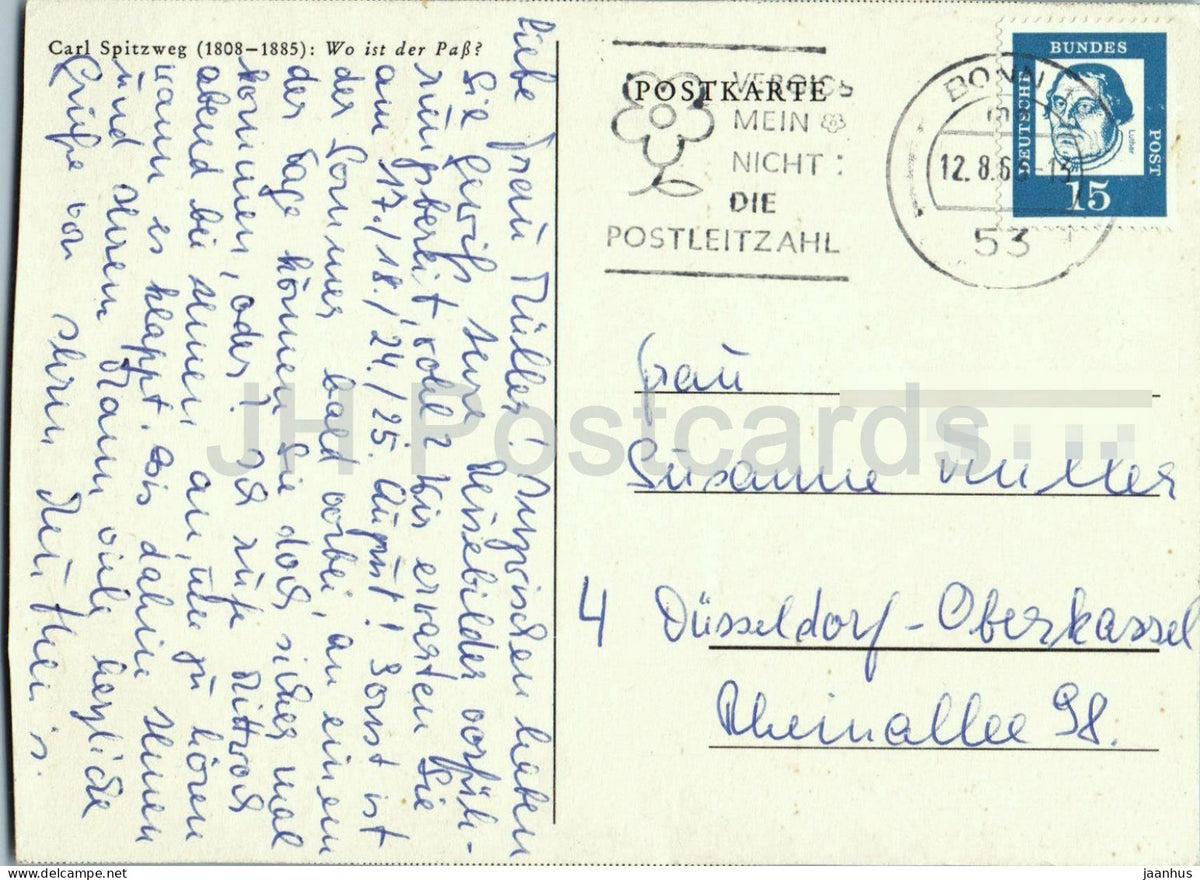 Carl Spitzweg (1808–1885): Wo ist der Paß?
Liebe Frau Müller! Inzwischen haben
Sie gewiß Ihre Reisebilder vorführ-
rüngsbereit, wohl? Wir erwarten Sie
am 17./18./24./25. August! Sonst ist
der Sommer bald vorbei, an einem
der Tage können Sie doch sicher mal
kommen, oder? Ich rufe Mittwoch
abend bei Ihnen an, um zu hören
wann es klappt. Bis dahin Ihnen
und Ihrem Mann viele herzliche
Grüße von Ihrem
POSTKARTE
VERGISS
MEIN
NICHT:
DIE
POSTLEITZAHL
BONN 1
12.8.6 -13
53
DEUTSCHE BUNDES POST
Luther
15
Frau
Susanne Müller
4 Düsseldorf-Oberkassel
Rheinallee 98.
JH Postcards
delcampe.net
jaanhus